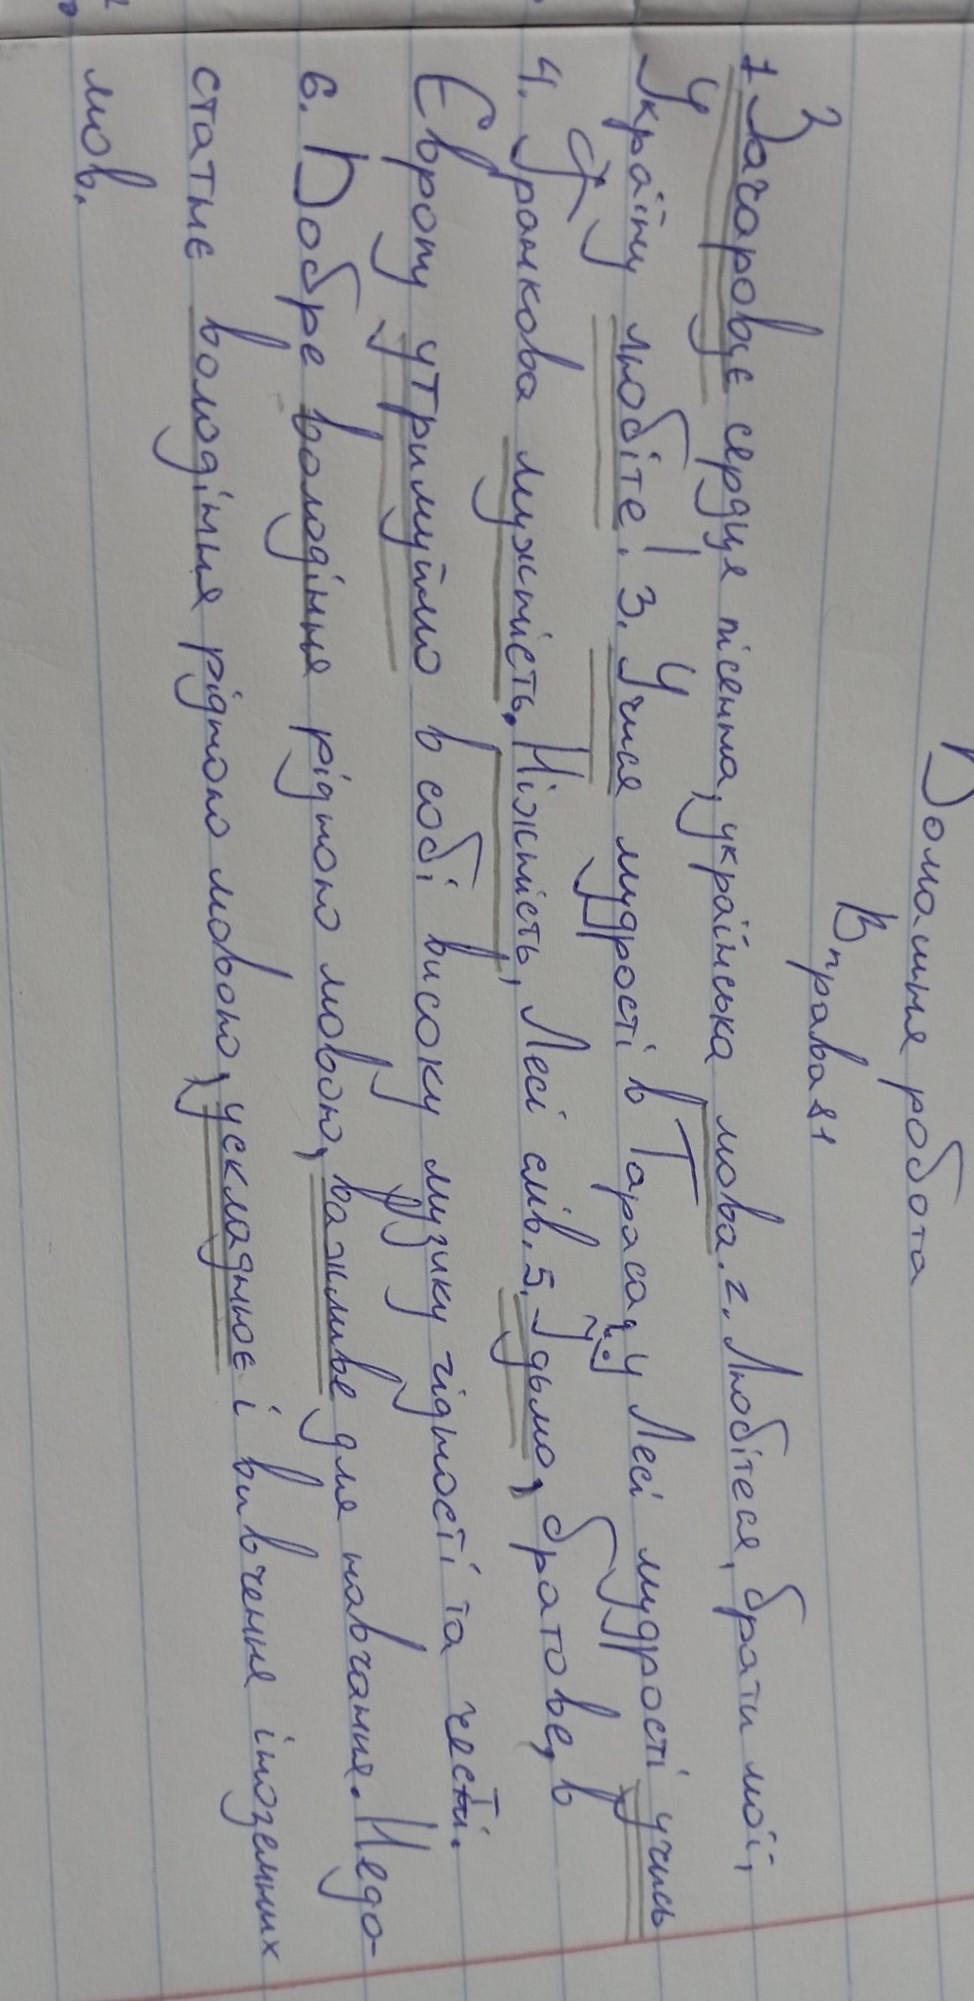 Домашня робота
Вправа 81
1. Зачаровує серце пісенна, українська мова. 2. Любітеся, брати мої,
Україну любіте! 3. Учися мудрості в Тараса, у Лесі мудрості учись
4. Франкова мужність. Ніжність, Лесі слів. 5. Ідьмо, братове, в
Європу утримуймо в собі високу музику гідності та честі.
6. Добре володіння рідною мовою, важливе для навчання. Недо-
статнє володіння рідною мовою, ускладнює і вивчення іноземних
мов.